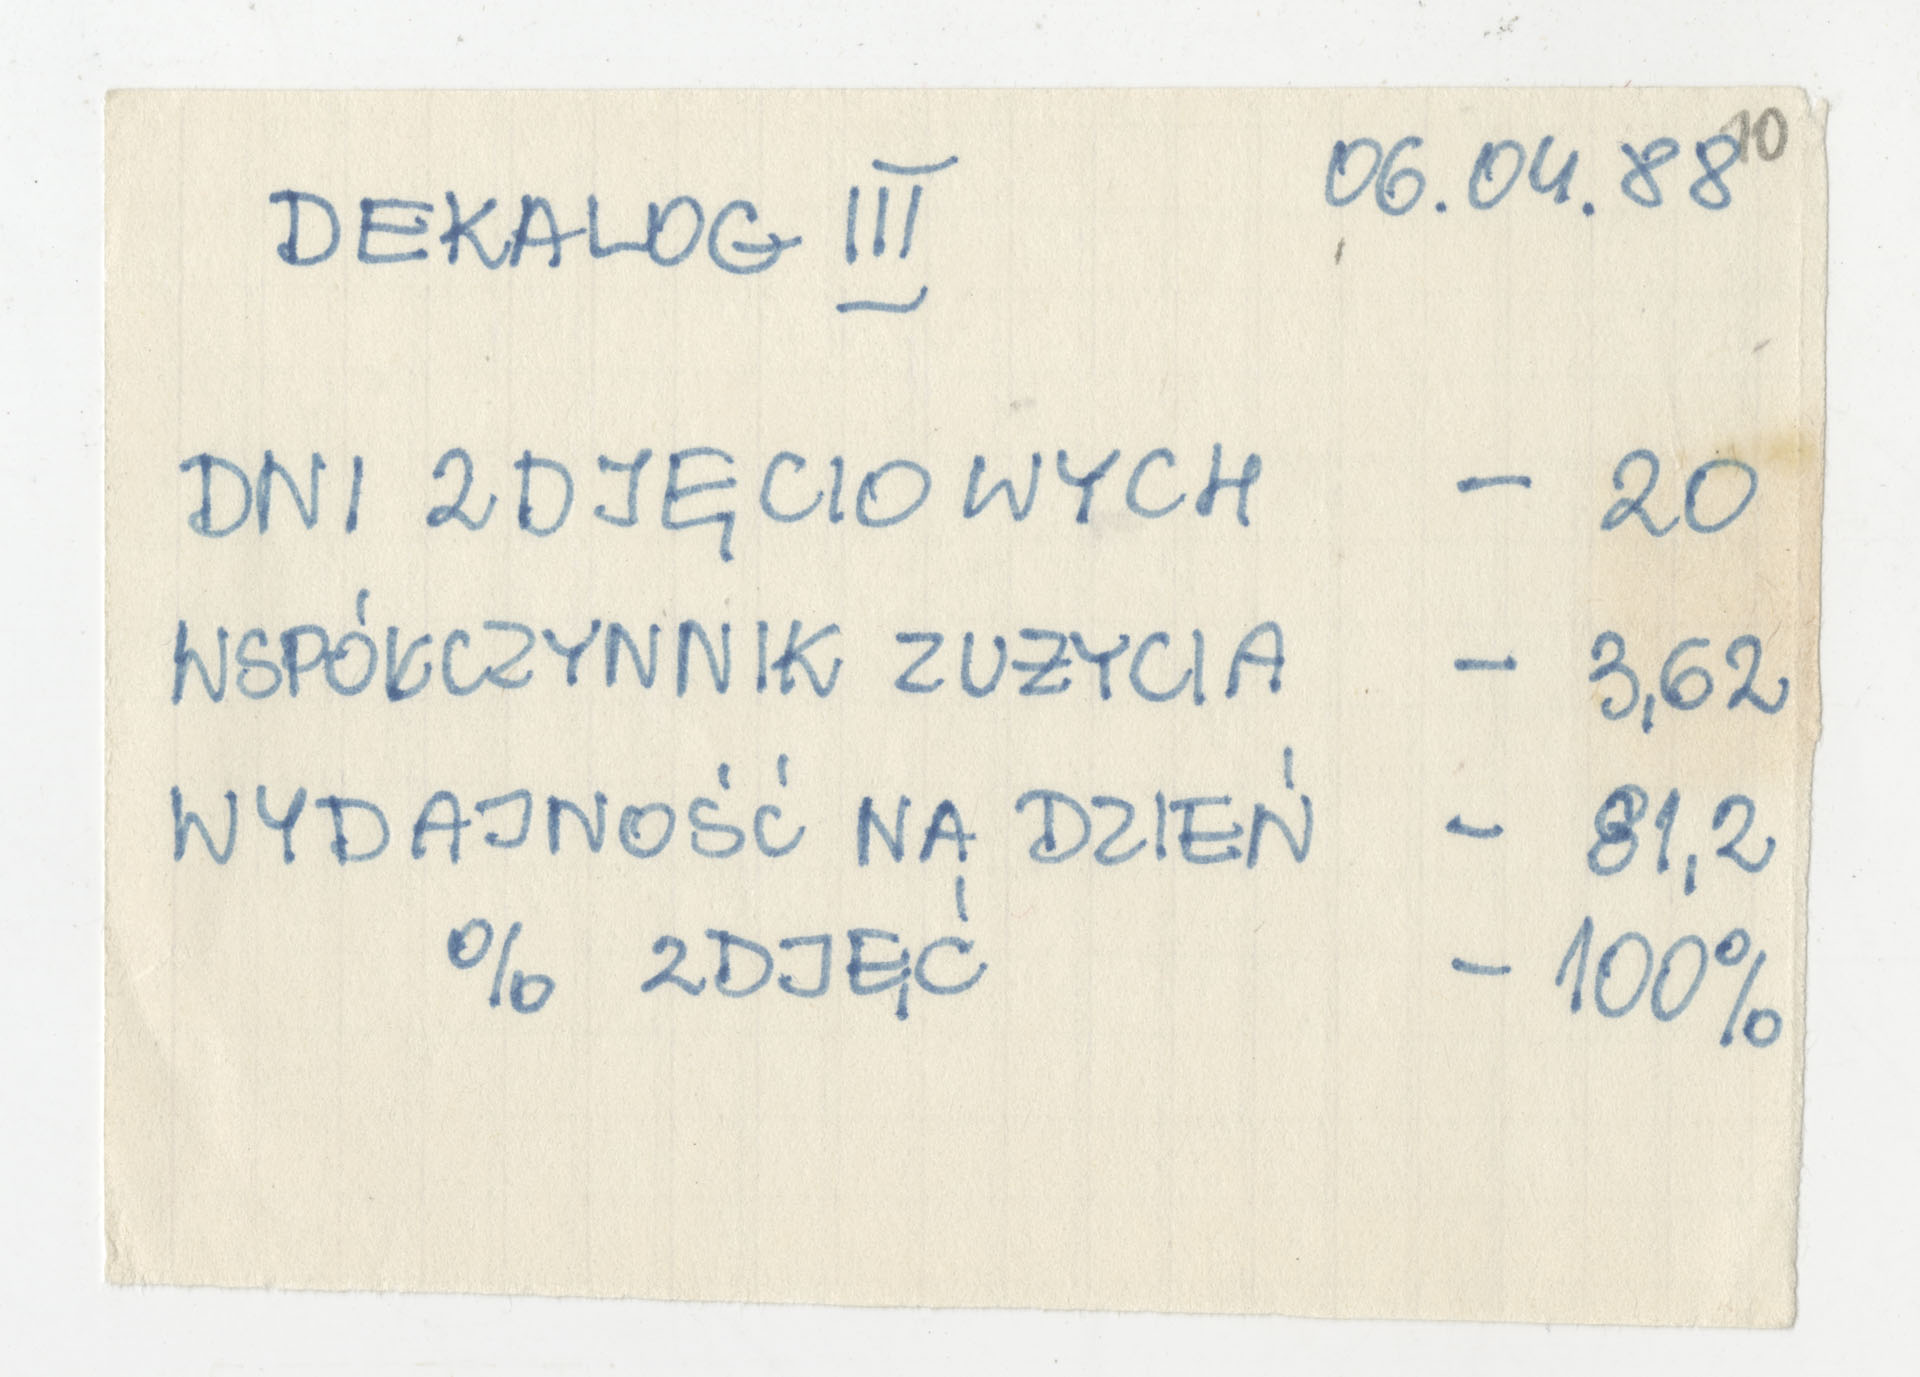 10
DEKALOG III 06.04.88
DNI ZDJĘCIOWYCH - 20
WSPÓŁCZYNNIK ZUŻYCIA - 3,62
WYDAJNOŚĆ NA DZIEŃ - 81,2
% ZDJĘĆ - 100%